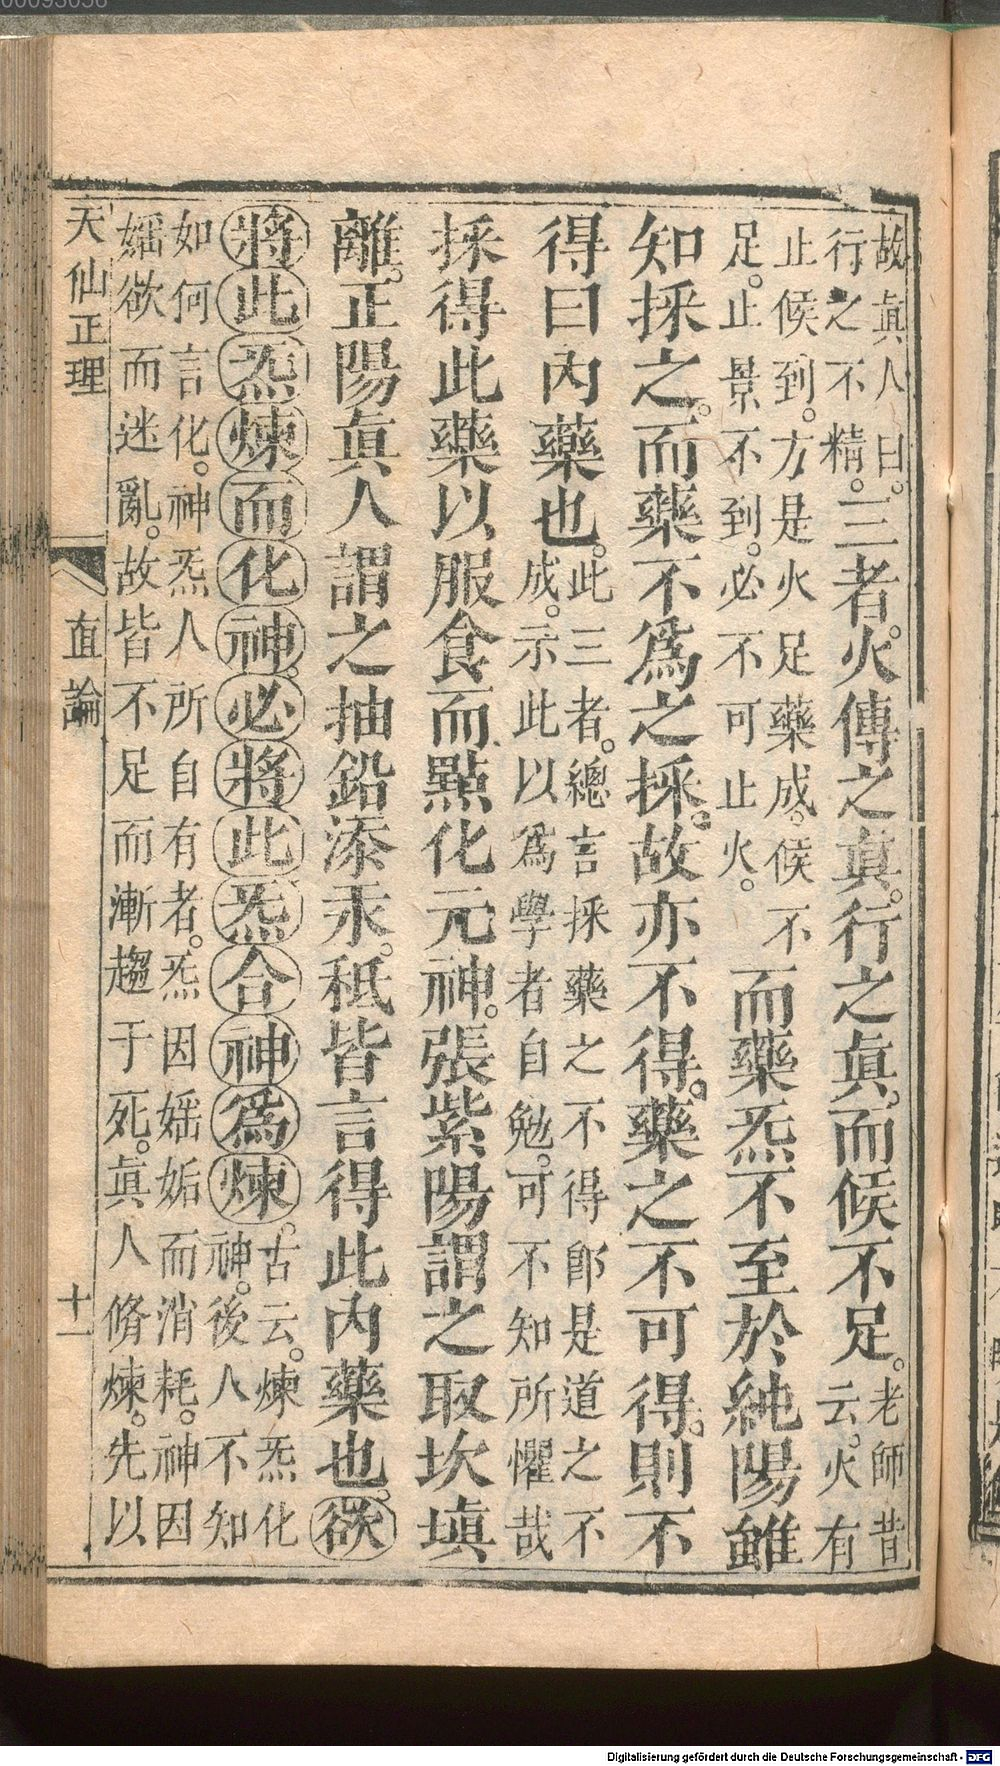 故眞人曰。
行之不精。
三者。火傳之眞。行之眞。而候不足。
老師昔
云。火有
止候到。方是火足藥成。候不
足。止景不到。必不可止火。
而藥炁不至於純陽雖
知採之。而藥不爲之採。故亦不得。藥之不可得。則不
得曰內藥也。
此三者。總言採藥之不得卽是道之不
成。示此以爲學者自勉。可不知所懼哉
採得此藥以服食而點化元神。張紫陽謂之取坎塡
離。正陽眞人謂之抽鉛添汞。秪皆言得此內藥也。欲
將此炁煉而化神。必將此炁合神爲煉。
古云。煉炁化
神。後人不知
如何言化。神炁人所自有者。炁因婬姤而消耗。神因
婬欲而迷亂。故皆不足而漸趨于死。眞人脩煉。先以
天仙正理 直論 十一
Digitalisierung gefördert durch die Deutsche Forschungsgemeinschaft - DFG